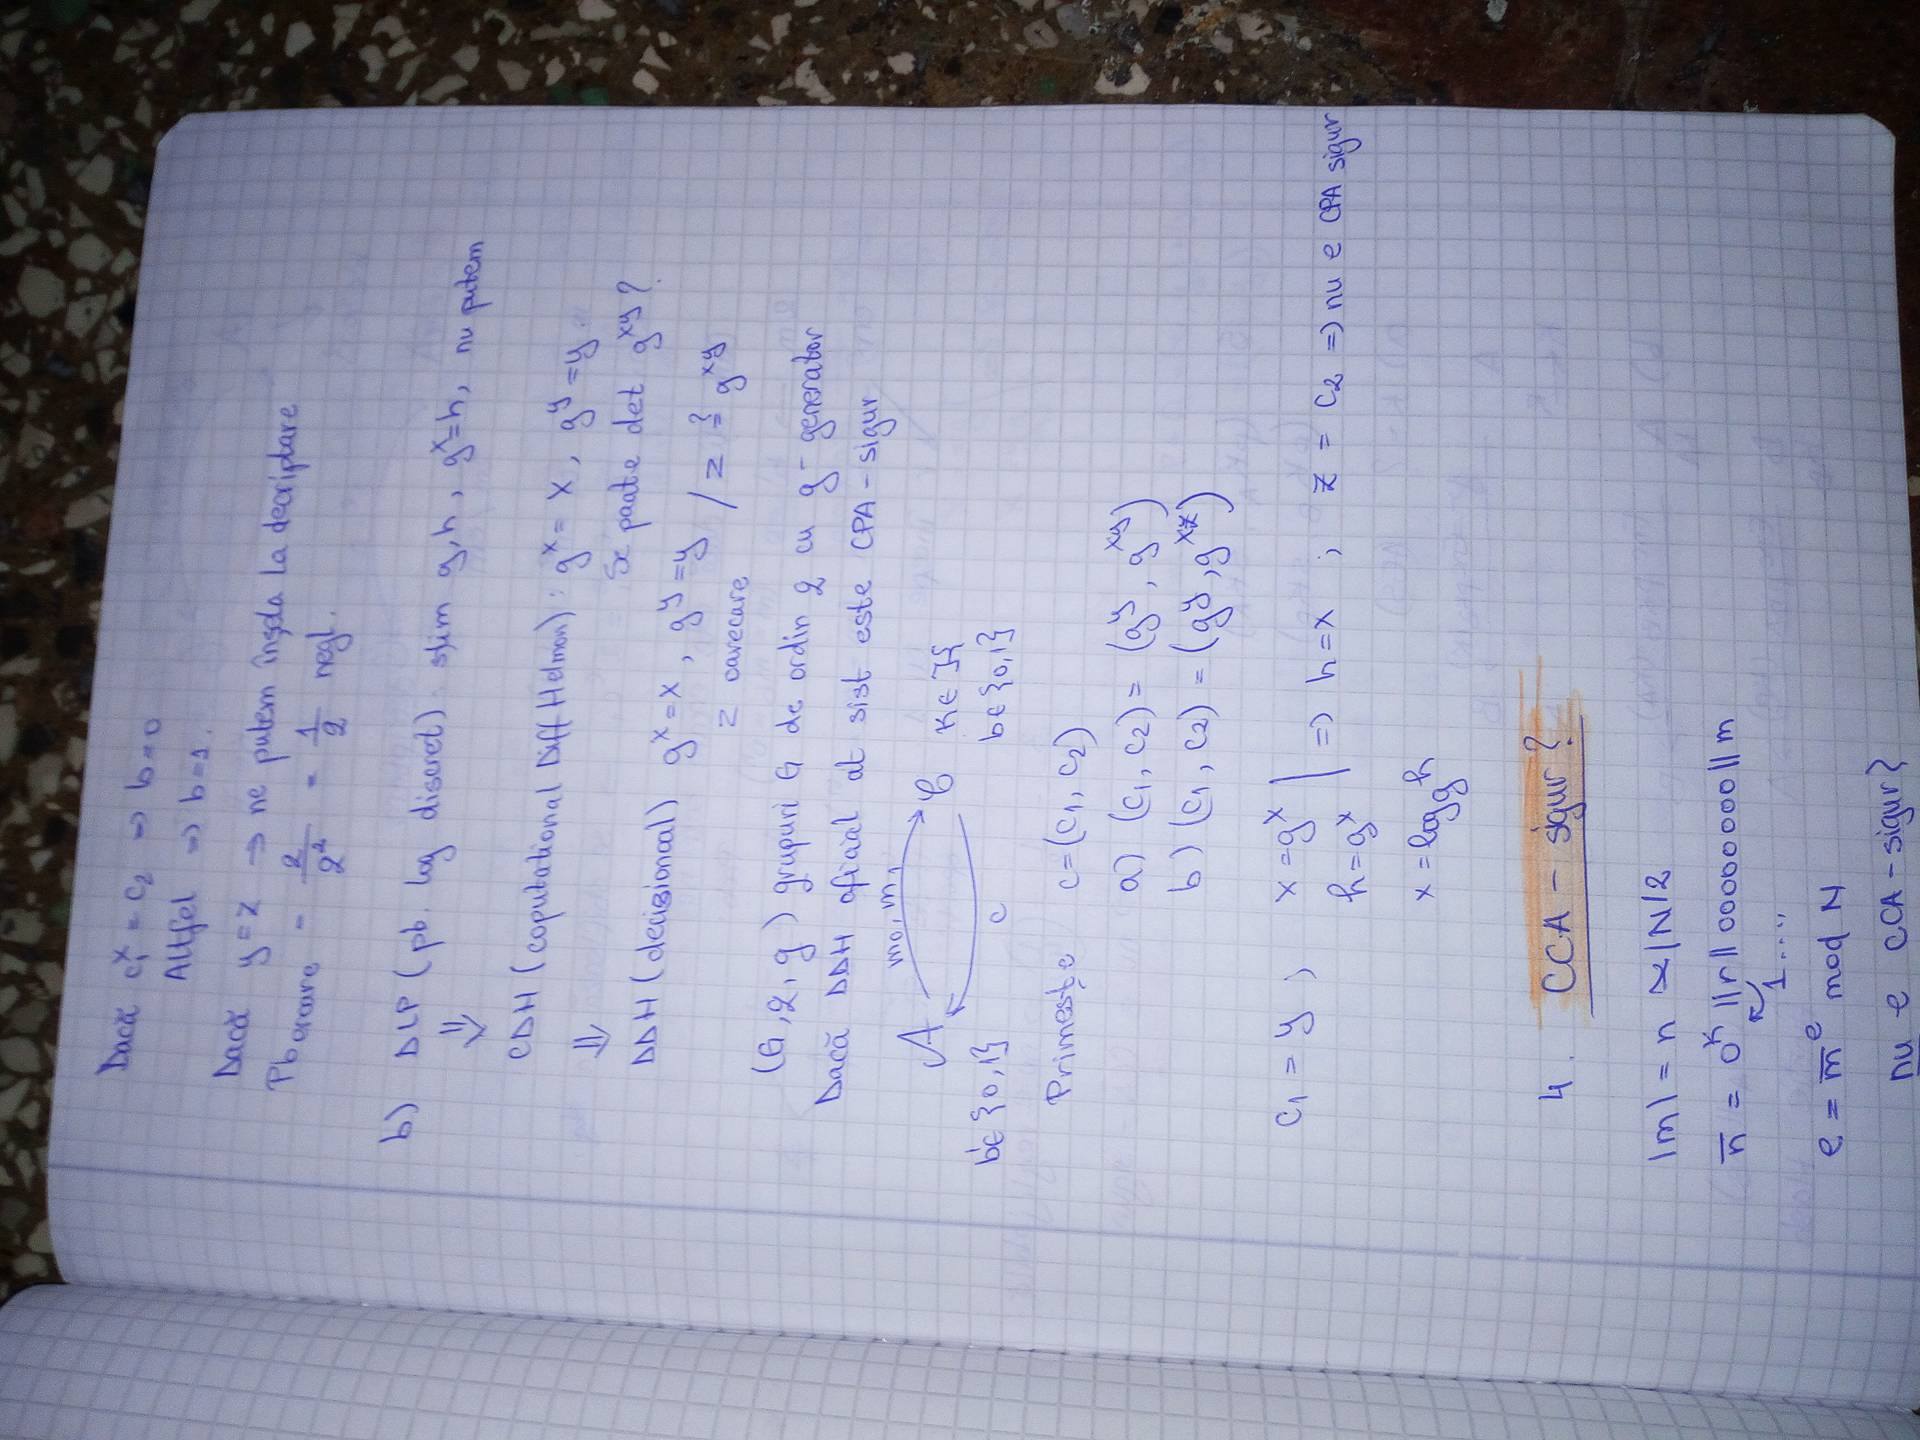 Dacă c₁ˣ = c₂ => b=0
Altfel => b=1.
Dacă y=z -> ne putem înșela la decriptare
Pb eroare = 2/2ⁿ = 1/2 negl.
b) DLP (pb. log discret): știm g, h, gˣ=h, nu putem
⇓
CDH (coputational Diff Helman): gˣ = X, gʸ = y
Se poate det gˣʸ?
⇓
DDH (decisional) gˣ = X, gʸ = y / z ≟ gˣʸ
z oarecare
(G, q, g) grupuri G de ordin q cu g - generator
Dacă DDH aficial at sist este CPA-sigur
A m₀, m₁ C K∈
c
b'∈{0,1} b∈{0,1}
Primește c=(c₁, c₂)
a) (c₁, c₂) = (gʸ, gˣʸ)
b) (c₁, c₂) = (gʸ, gˣᶻ)
c₁ = y, x = gˣ
h = gˣ => h = x ; z = c₂ => nu e CPA sigur
x = log_g h
4. CCA - sigur?
|m| = n ≈ |N|/2
m̄ = 0ᵏ || r || 00000000 || m
1....
e = m̄ᵉ mod N
nu e CCA-sigur?